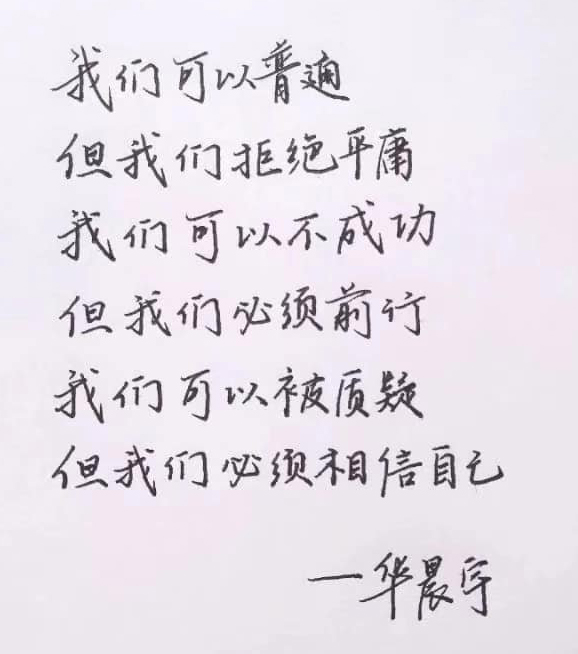 我们可以普通
但我们拒绝平庸
我们可以不成功
但我们必须前行
我们可以被质疑
但我们必须相信自己
—华晨宇